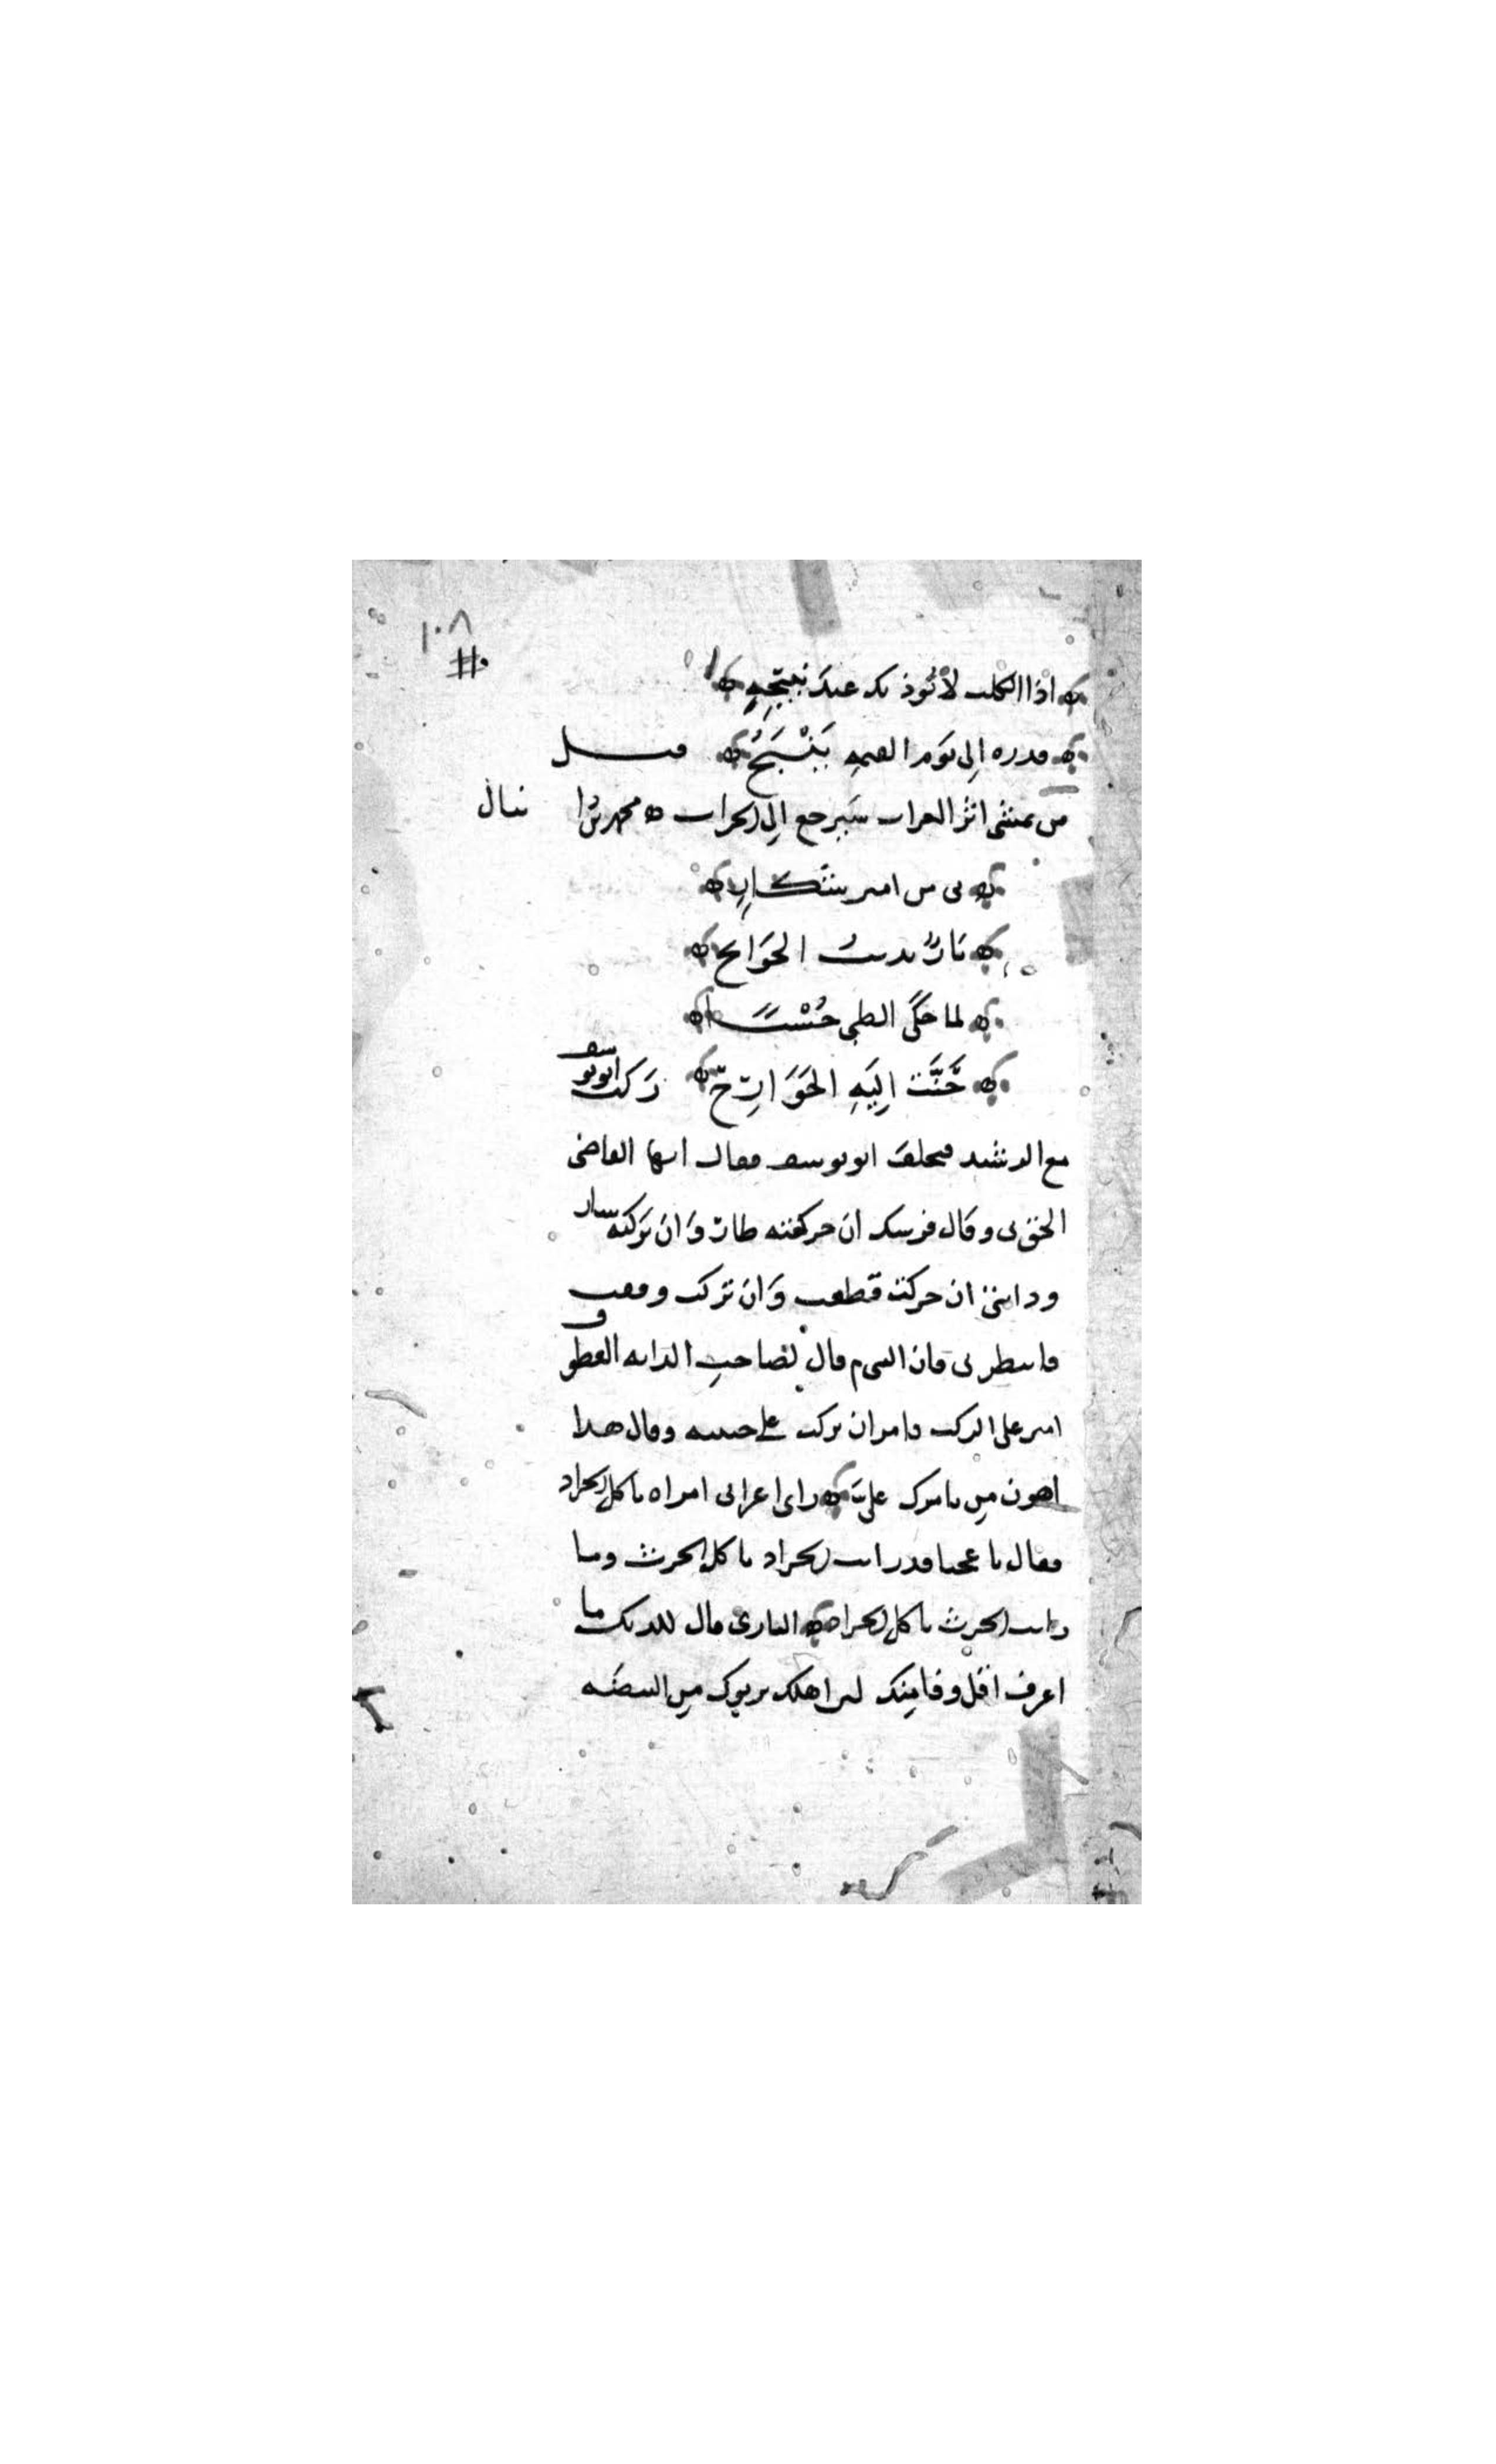 ١٠٨
اذا الكلب لا يوذيك عند نبيحه
فدره الى يوم القيمه ينبح قيل
من يمشي اثر الغراب سيرجع الى الخراب محمد بن
بي من امير شكار
نار تديب الجوانح
لما حكى الظبي حسنا
حنت اليه الجوارح ركب ابو يوسف
مع الرشيد فتخلف ابو يوسف فقال ايها القاضي
الحق بي وقال فرسك ان حركته طار وان تركته سار
ودابتي ان حركت قطفت وان تركت وقفت
فانتظرني فان النبي م قال لصاحب الدابه القطوف
امير على الركب فامر ان يركب على جنيبه وقال هذا
اهون من تامرك علي راى اعرابي امراه تاكل الجراد
فقال يا عجبا قد رايت الجراد ياكل الحرث وما
رايت الحرث ياكل الجراد البازي قال للديك ما
اعرف اقل وفا منك لان اهلك يربوك من البيضه